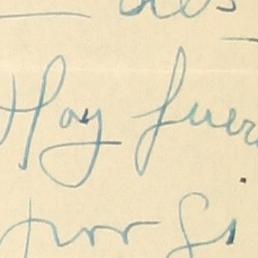 Hay fuer
por si